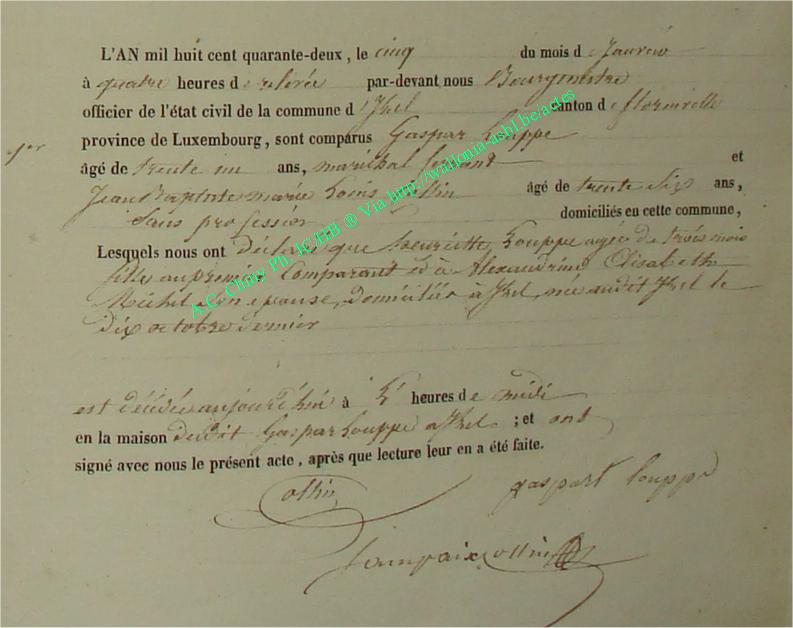 L'AN mil huit cent quarante-deux, le cinq du mois de Janvier
à quatre heures de relevée par-devant nous Bourgmestre
officier de l'état civil de la commune d'Izel canton de florenville
1er province de Luxembourg, sont comparus Gaspar Louppe
âgé de trente un ans, maréchal ferrant et
Jean Baptiste marie Louis Ottin âgé de trente Six ans,
Sans profession domiciliés en cette commune,
Lesquels nous ont Déclaré que henriette Louppe agée de trois mois
fille au premier Comparant et à Alexandrine Elisabeth
Michel Son epouse, domiciliés à Izel, née audit Izel le
dix octobre dernier
est décédée aujourd'hui à heures de midi
en la maison dudit Gaspar Louppe à Izel ; et ont
signé avec nous le présent acte, après que lecture leur en a été faite.
Ottin gaspart Louppe
ottin
A.C. Chiny Ph. IC HB ® Via http://wallonia-asbl.be/actes